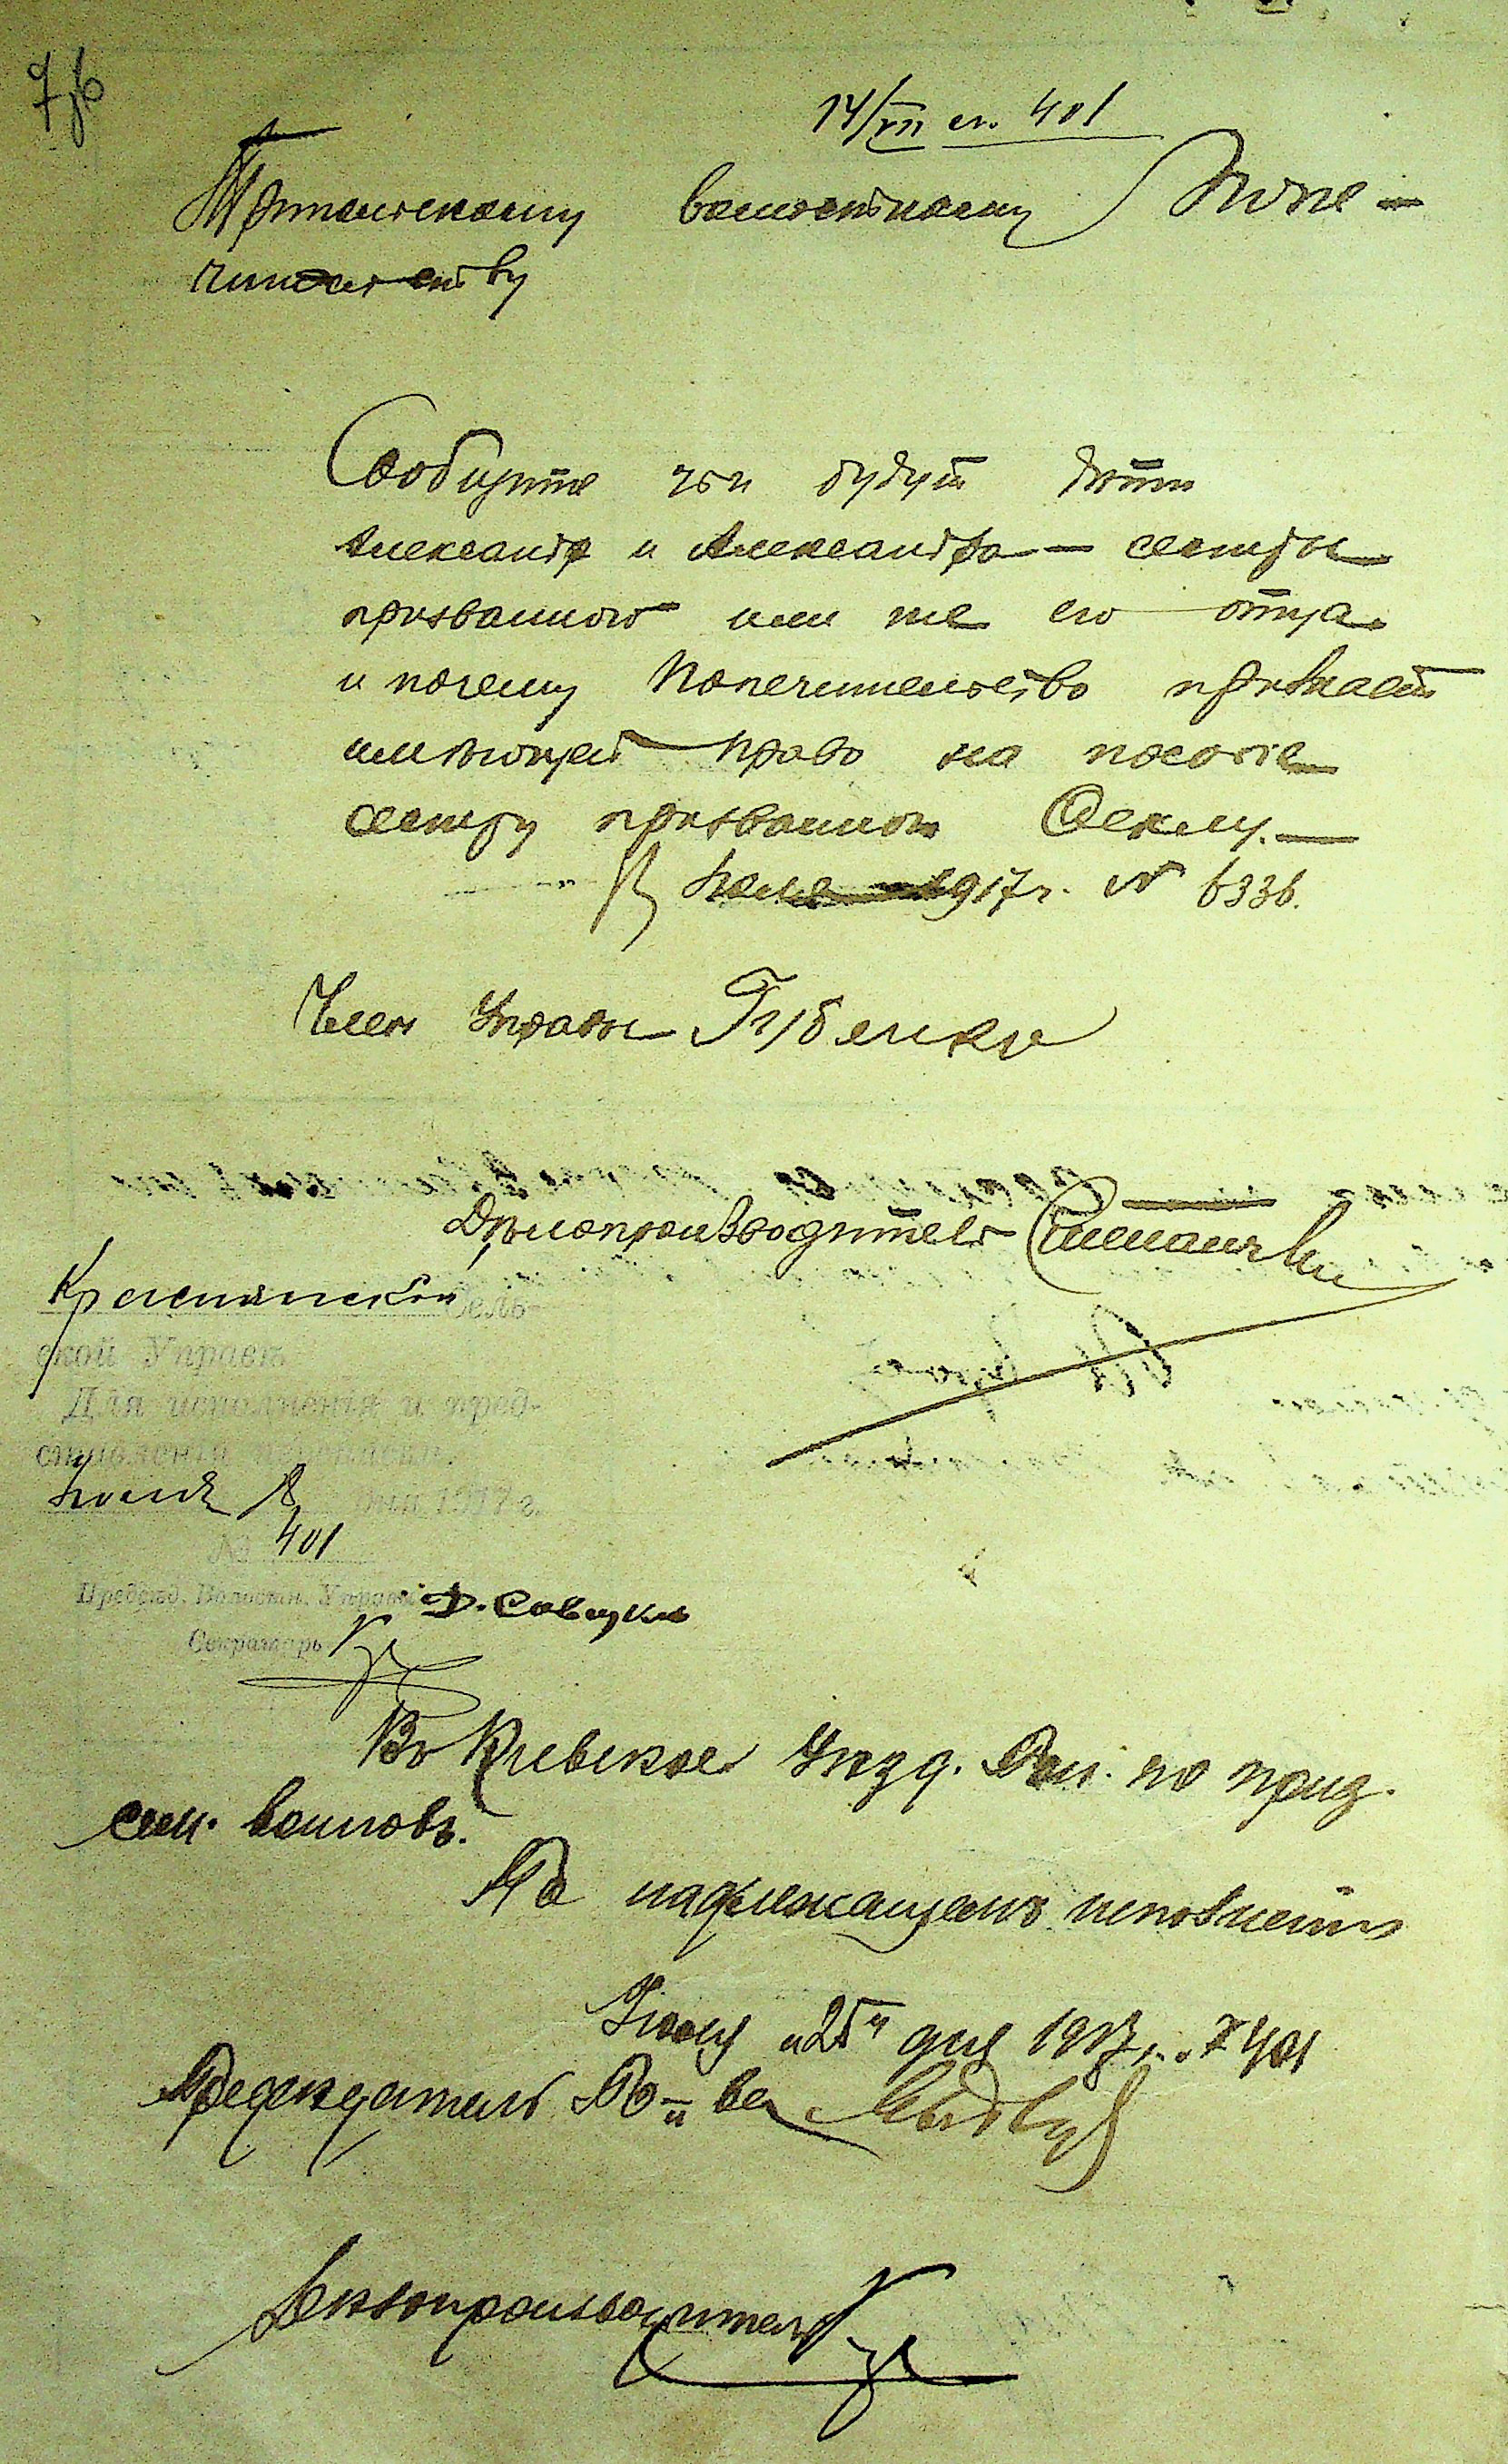 14/VII вх. 401
Трипольскому волостному Попе-
чительству
Сообщите чьи будут дѣти
Александр и Александра — сестры
призванного или же его отца
и почему Попечительство признает
имѣющей право на пособіе
сестру призванного Феклу. —
Іюля 1917 г. № 6336.
Член Управы Губенко
Дѣлопроизводитель
Сель-
ской Управѣ
Для исполненія и пред-
ставленія переписки.
Іюля 18 дня 1917 г.
№ 401
Предсѣд. Волостн. Управы Д. Савчук
Секретарь
Въ Кіевское Уѣзд. по приз.
сем. воиновъ.
По надлежащемъ исполненіи
Іюля "25" дня 1917 г. № 401
Предсѣдатель По-ва
Дѣлопроизводитель